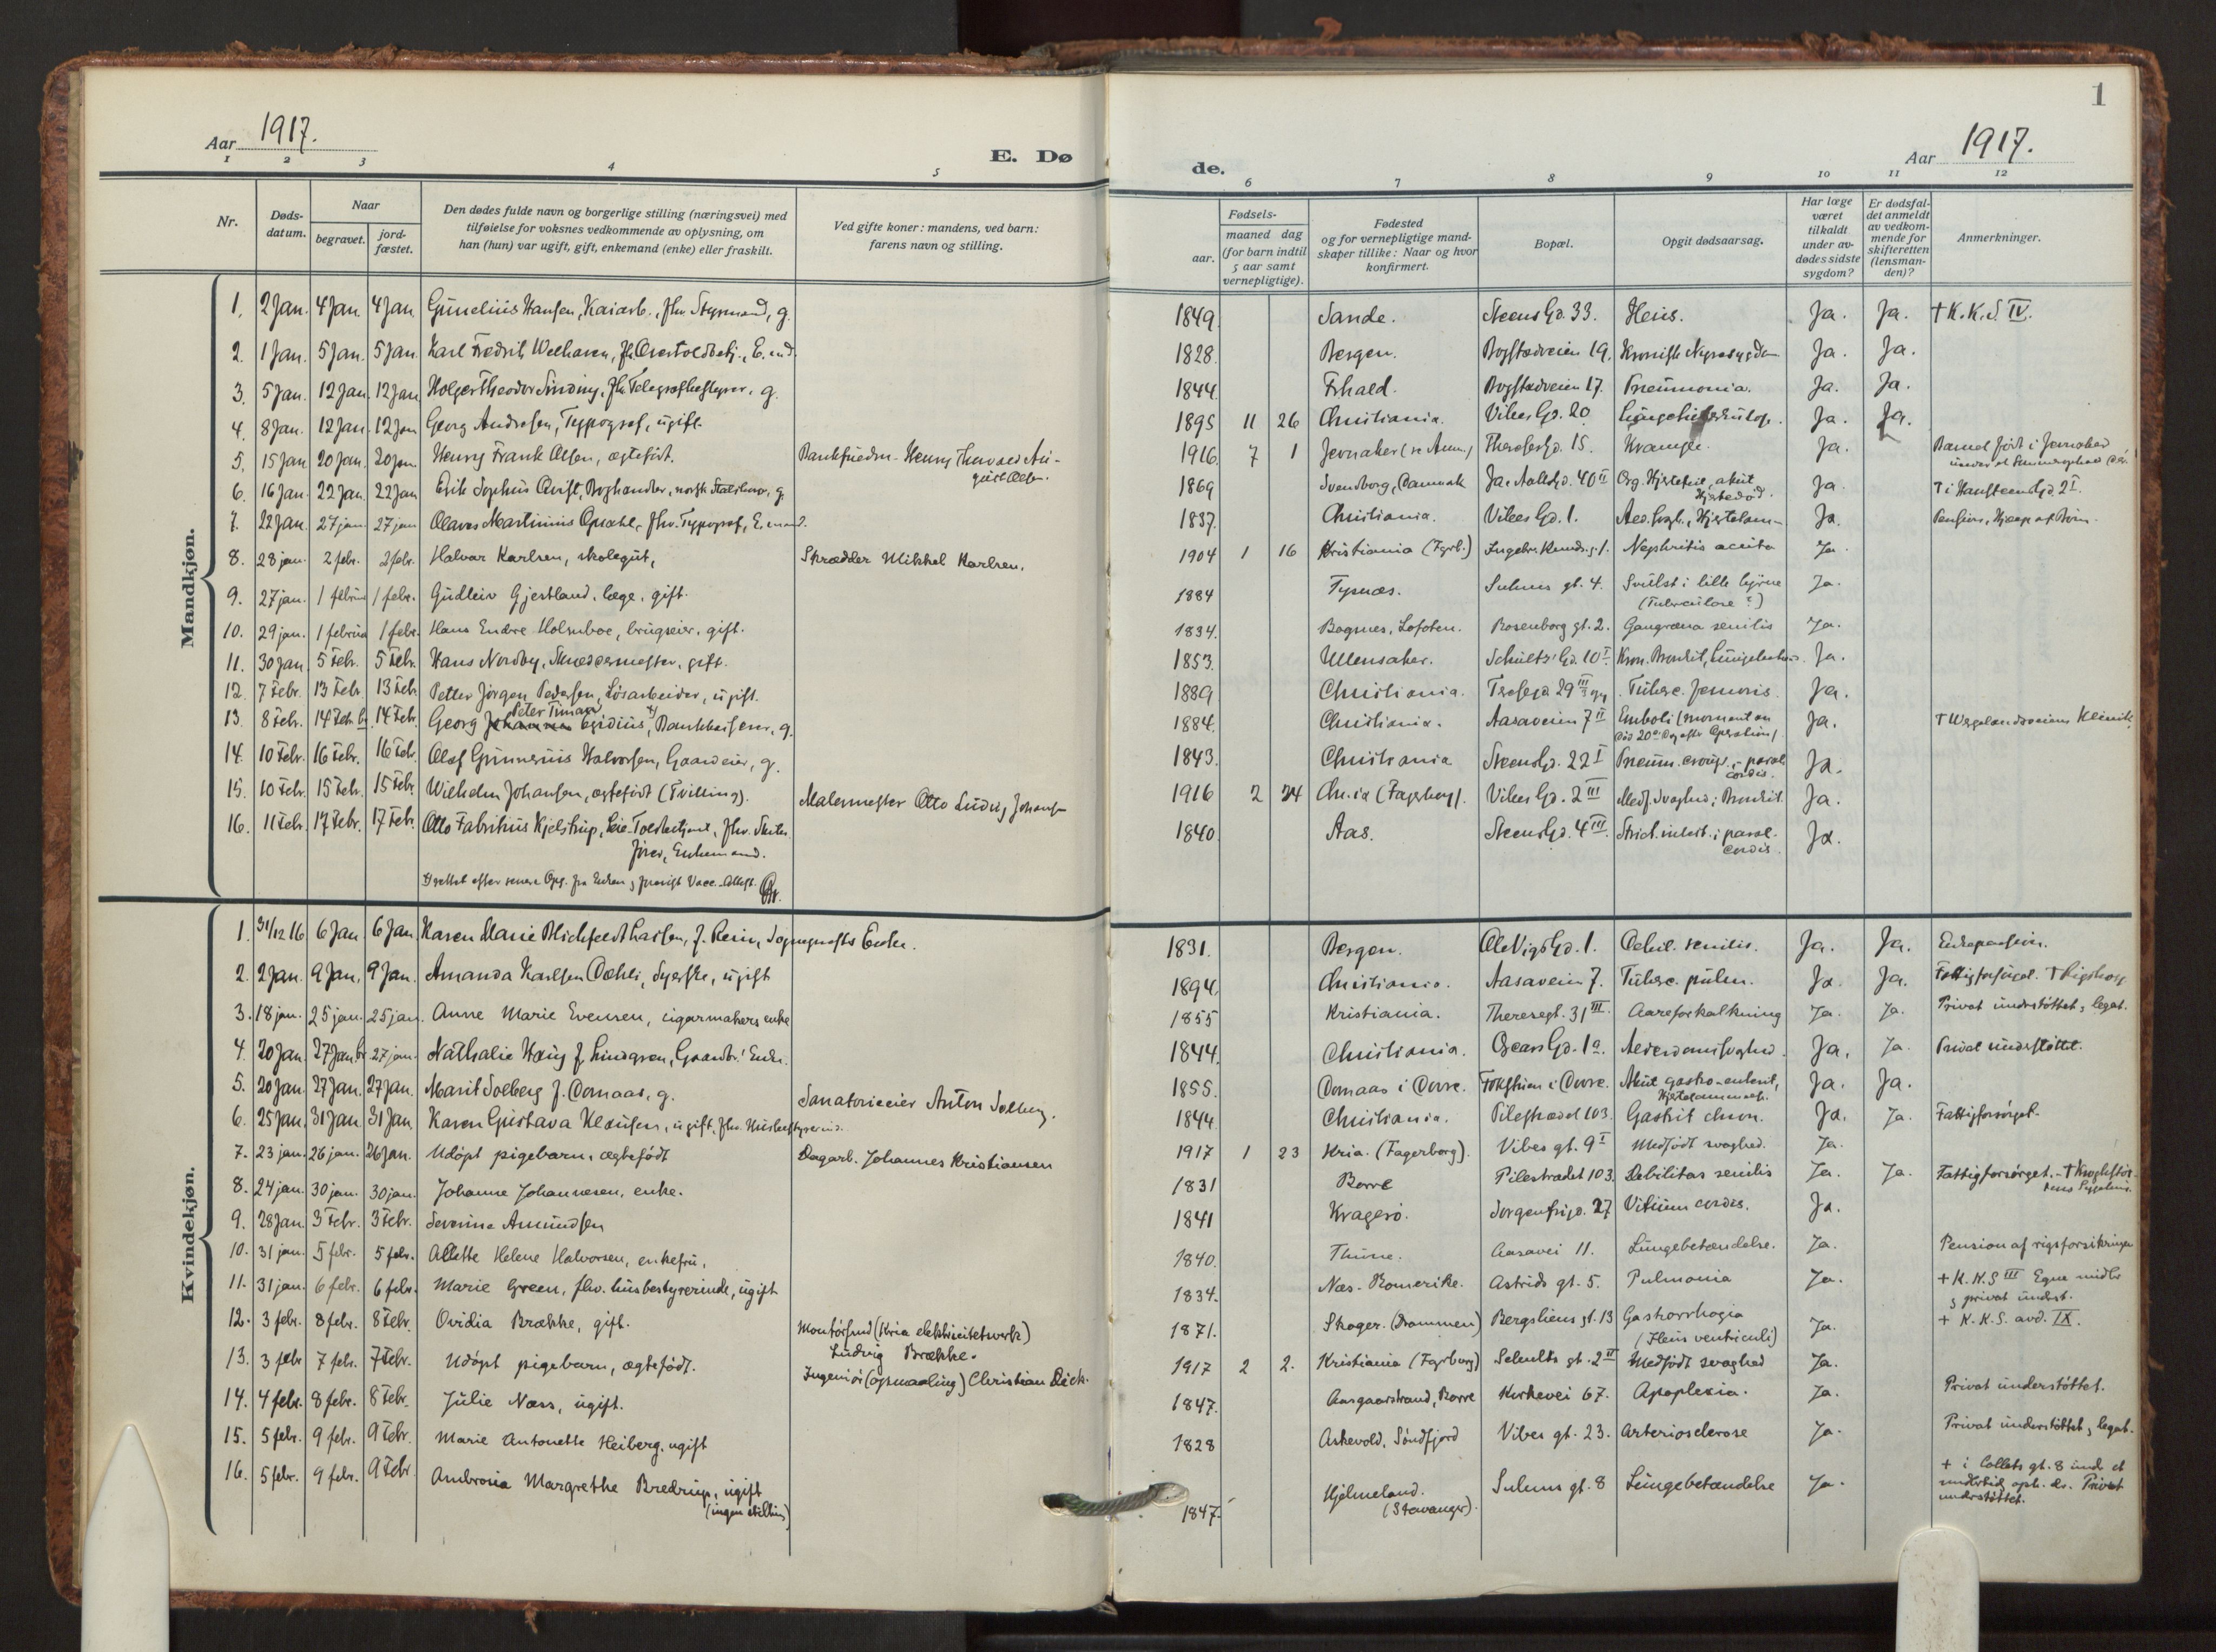 1
Aar 1917.
E. Dø
de.
Aar 1917.
1 2 3 4 5 6 7 8 9 10 11 12
Nr.
Døds-
datum.
Naar
begravet.
jord-
fæstet.
Den dødes fulde navn og borgerlige stilling (næringsvei) med
tilføielse for voksnes vedkommende av oplysning, om
han (hun) var ugift, gift, enkemand (enke) eller fraskilt.
Ved gifte koner: mandens, ved barn:
farens navn og stilling.
Fødsels-
aar.
maaned dag
(for barn indtil
5 aar samt
vernepligtige).
Fødested
og for vernepligtige mand-
skaper tillike: Naar og hvor
konfirmert.
Bopæl.
Opgit dødsaarsag.
Har læge
været
tilkaldt
under av-
dødes sidste
sygdom?
Er dødsfal-
det anmeldt
av vedkom-
mende for
skifteretten
(lensman-
den)?
Anmerkninger.
Mandkjøn.
1. 2 Jan. 4 Jan. 4 Jan. Gunelius Hansen, Kaiarb., fhv. Styrmand, g. 1849. Sande. Steens Gd. 33. Ileus. Ja. Ja. † K.K.S. IV.
2. 1 Jan. 5 Jan. 5 Jan. Karl Fredrik Welhaven, fh. Overtoldbetj., E.md. 1828. Bergen. Bogstadveien 19. Kronisk Nyresygdom Ja. Ja.
3. 5 Jan. 12 Jan. 12 Jan Holger Theodor Sinding, fh. Telegrafbestyrer, g. 1844. Frhald. Bogstadveien 17. Pneumonia. Ja. Ja.
4. 8 Jan. 12 Jan. 12 Jan Georg Andresen, Typograf, ugift. 1895 11 26 Christiania. Vibes Gd. 20 Ja. Ja.
5. 15 Jan 20 Jan. 20 Jan. Henry Frank Olsen, ægtefødt. Henry Thorvald 1916 7 1 Jevnaker (se Anm.) Theresegd. 15. Krampe. Ja. Barnet født i Jevnaker
6. 16 Jan. 22 Jan. 22 Jan Erik Sophus Qvist, Boghandler, norsk Statsborg., g. 1869 Svendborg, Danmark Ja. Aallsgd. 40 II Org. Hjertefeil, akut
Hjertedød. Ja † i Hansteensgd. 2 I.
7. 22 Jan. 27 jan 27 jan Olaves Martinius Opsahl, fhv. Typograf, E.mand. 1837. Christiania. Vibes Gd. 1. Ja. Pension, Hjælp af Børn.
8. 28 jan. 2 febr. 2 febr. Halvar Karlsen, skolegut, Skrædder Mikkel Karlsen. 1904 1 16 Kristiania (Fgrb.) Ingebr. Knuds. g. 1. Nephritis acuta Ja
9. 27 jan. 1 februar 1 febr. Gudleiv Gjestland, læge, gift. 1884 Tysnæs. Suhms gt. 4. Svulst i lille hjerne
(Tuberculose?) Ja.
10. 29 jan. 1 februar 1 febr. Hans Endre Holmboe, brugseier, gift. 1834. Bogenes, Lofoten. Rosenborg gt. 2. Gangræna senilis Ja.
11. 30 Jan. 5 Febr. 5 Febr. Hans Nordby, Skræddermester, gift. 1853. Ullensaker. Schultz' Gd. 10 I. Kron. Bronkit, Ja.
12. 7 Febr. 13 Febr. 13 Febr Petter Jørgen Pedersen, Løsarbeider, ugift. 1889 Christiania. Tuberc. femoris. Ja.
13. 8 Febr. 14 Feb. 14 Feb. Georg Peter Timan Egidius, Bankkasserer, g. 1884. Christiania. Aasaveien 7 II Emboli (momentan
død 20de Dag efter Operation) Ja. † Wergelandsveiens Klinik
14. 10 Febr. 16 Febr. 16 Feb. Olaf Gunnerius Halvorsen, Gaardeier, g. 1843. Christiania Steens Gd. 22 I Pneum. croup., paral.
cordis. Ja.
15. 10 Febr. 15 Febr. 15 Febr. Wilhelm Johansen, ægtefødt (Tvilling). Malermester Otto Ludvig Johansen 1916 2 24 Chr.ia (Fagerborg). Vibes Gd. 2 III Medf. Svaghed; Bronkit. Ja.
16. 11 Febr. 17 Febr. 17 Feb. Otto Fabritius Kjelstrup, Toldbetjent, fhv. Skibs-
fører, Enkemand. 1840. Aas. Steens Gd. 4 III. Strict. intest.; paral.
cordis. Ja.
Kvindekjøn.
1. 31/12 16 6 Jan 6 Jan Karen Marie Blichfeldt Larsen, f. Rein, Sogneprests Enke. 1831. Bergen. Ole Vigs Gd. 1. Debil. senilis. Ja. Ja. Enkepension.
2. 2 Jan. 9 Jan. 9 Jan. Amanda Karlsen Dæhli, Syerske, ugift 1894. Christiania. Aasaveien 7. Tuberc. pulm. Ja. Ja. Fattigforsørget. † Rigshosp.
3. 18 jan. 25 jan. 25 jan. Anne Marie Evensen, cigarmakers enke 1855 Kristiania. Theresegt. 31 III. Aareforkalkning Ja. Ja. Privat understøttet, legat.
4. 20 Jan. 27 Jan. 27 jan. Nathalie Haug f. Lindgren, Gaardbr.' Enke. 1844. Christiania. Oscars Gd. 1a. Alderdomssvaghed. Ja. Ja. Privat understøttet.
5. 20 Jan. 27 Jan. 27 Jan. Marit Solberg f. Domaas, g. Sanatorieeier Anton Solberg. 1855. Domaas i Dovre. Fokstuen i Dovre. Akut gastro-enterit,
Hjertelammelse. Ja. Ja.
6. 25 Jan. 31 Jan. 31 Jan. Karen Gustava Klausen, ugift, fhv. Husbestyrerinde. 1844. Christiania. Pilestrædet 103. Gastrit chron. Ja. Ja Fattigforsørget.
7. 23 jan. 26 jan. 26 jan. Udøpt pigebarn, ægtefødt Dagarb. Johannes Kristiansen 1917 1 23 Kria. (Fagerborg). Vibes gt. 9 I Medfødt svaghed. Ja.
8. 24 jan. 30 jan. 30 jan. Johanne Johannesen, enke. 1831 Borre Pilestrædet 103. Debilitas senilis Ja. Ja. Fattigforsørget. † Krogstøt-
tens Sygehus.
9. 28 Jan. 3 Febr. 3 Febr. Severine Amundsen 1841 Kragerø. Sorgenfrigd. 27 Vitium cordis. Ja.
10. 31 jan. 5 febr. 5 febr. Allette Helene Halvorsen, enkefru. 1840. Thune. Aasavei 11. Lungebetændelse. Ja. Pension af rigsforsikringen
11. 31 jan. 6 febr. 6 febr. Marie Green, fhv. husbestyrerinde, ugift 1834. Næs. Romerike. Astrids gt. 5. Pulmonia Ja. † K.K.S III Egne midler
& privat underst.
12. 3 febr. 8 febr. 8 Febr. Ovidia Brække, gift. Montørfmd (Kria elektricitetsverk)
Ludvig Brække. 1871. Skoger. (Drammen) Bergsliens gt. 13 Gastorrhagia
(Ileus ventriculi) Ja. † K.K.S. avd. IX.
13. 3 febr 7 febr. 7 Febr. Udøpt pigebarn, ægtefødt. Ingeniør (opmaaling) Christian Dick. 1917 2 2. Kristiania (Fgrborg) Schultz gt. 2 II Medfødt svaghed Ja.
14. 4 febr. 8 febr. 8 Febr. Julie Næss, ugift. 1847. Aasgaardstrand, Borre Kirkevei 67. Apoplexia. Ja. Privat understøttet.
15. 5 febr. 9 febr. 9 Febr. Marie Antonette Heiberg, ugift 1828 Askevold, Søndfjord Vibes gt. 23. Arteriosclerose Ja. Privat understøttet, legat.
16. 5 febr. 9 febr. 9 Febr Ambrosia Margrethe Bredrup, ugift
(ingen stilling) 1847. Hjelmeland.
(Stavanger). Suhms gt. 8 Lungebetændelse Ja. † i Collets gt. 8 und. et
midlertid. oph. der. Privat
understøttet.